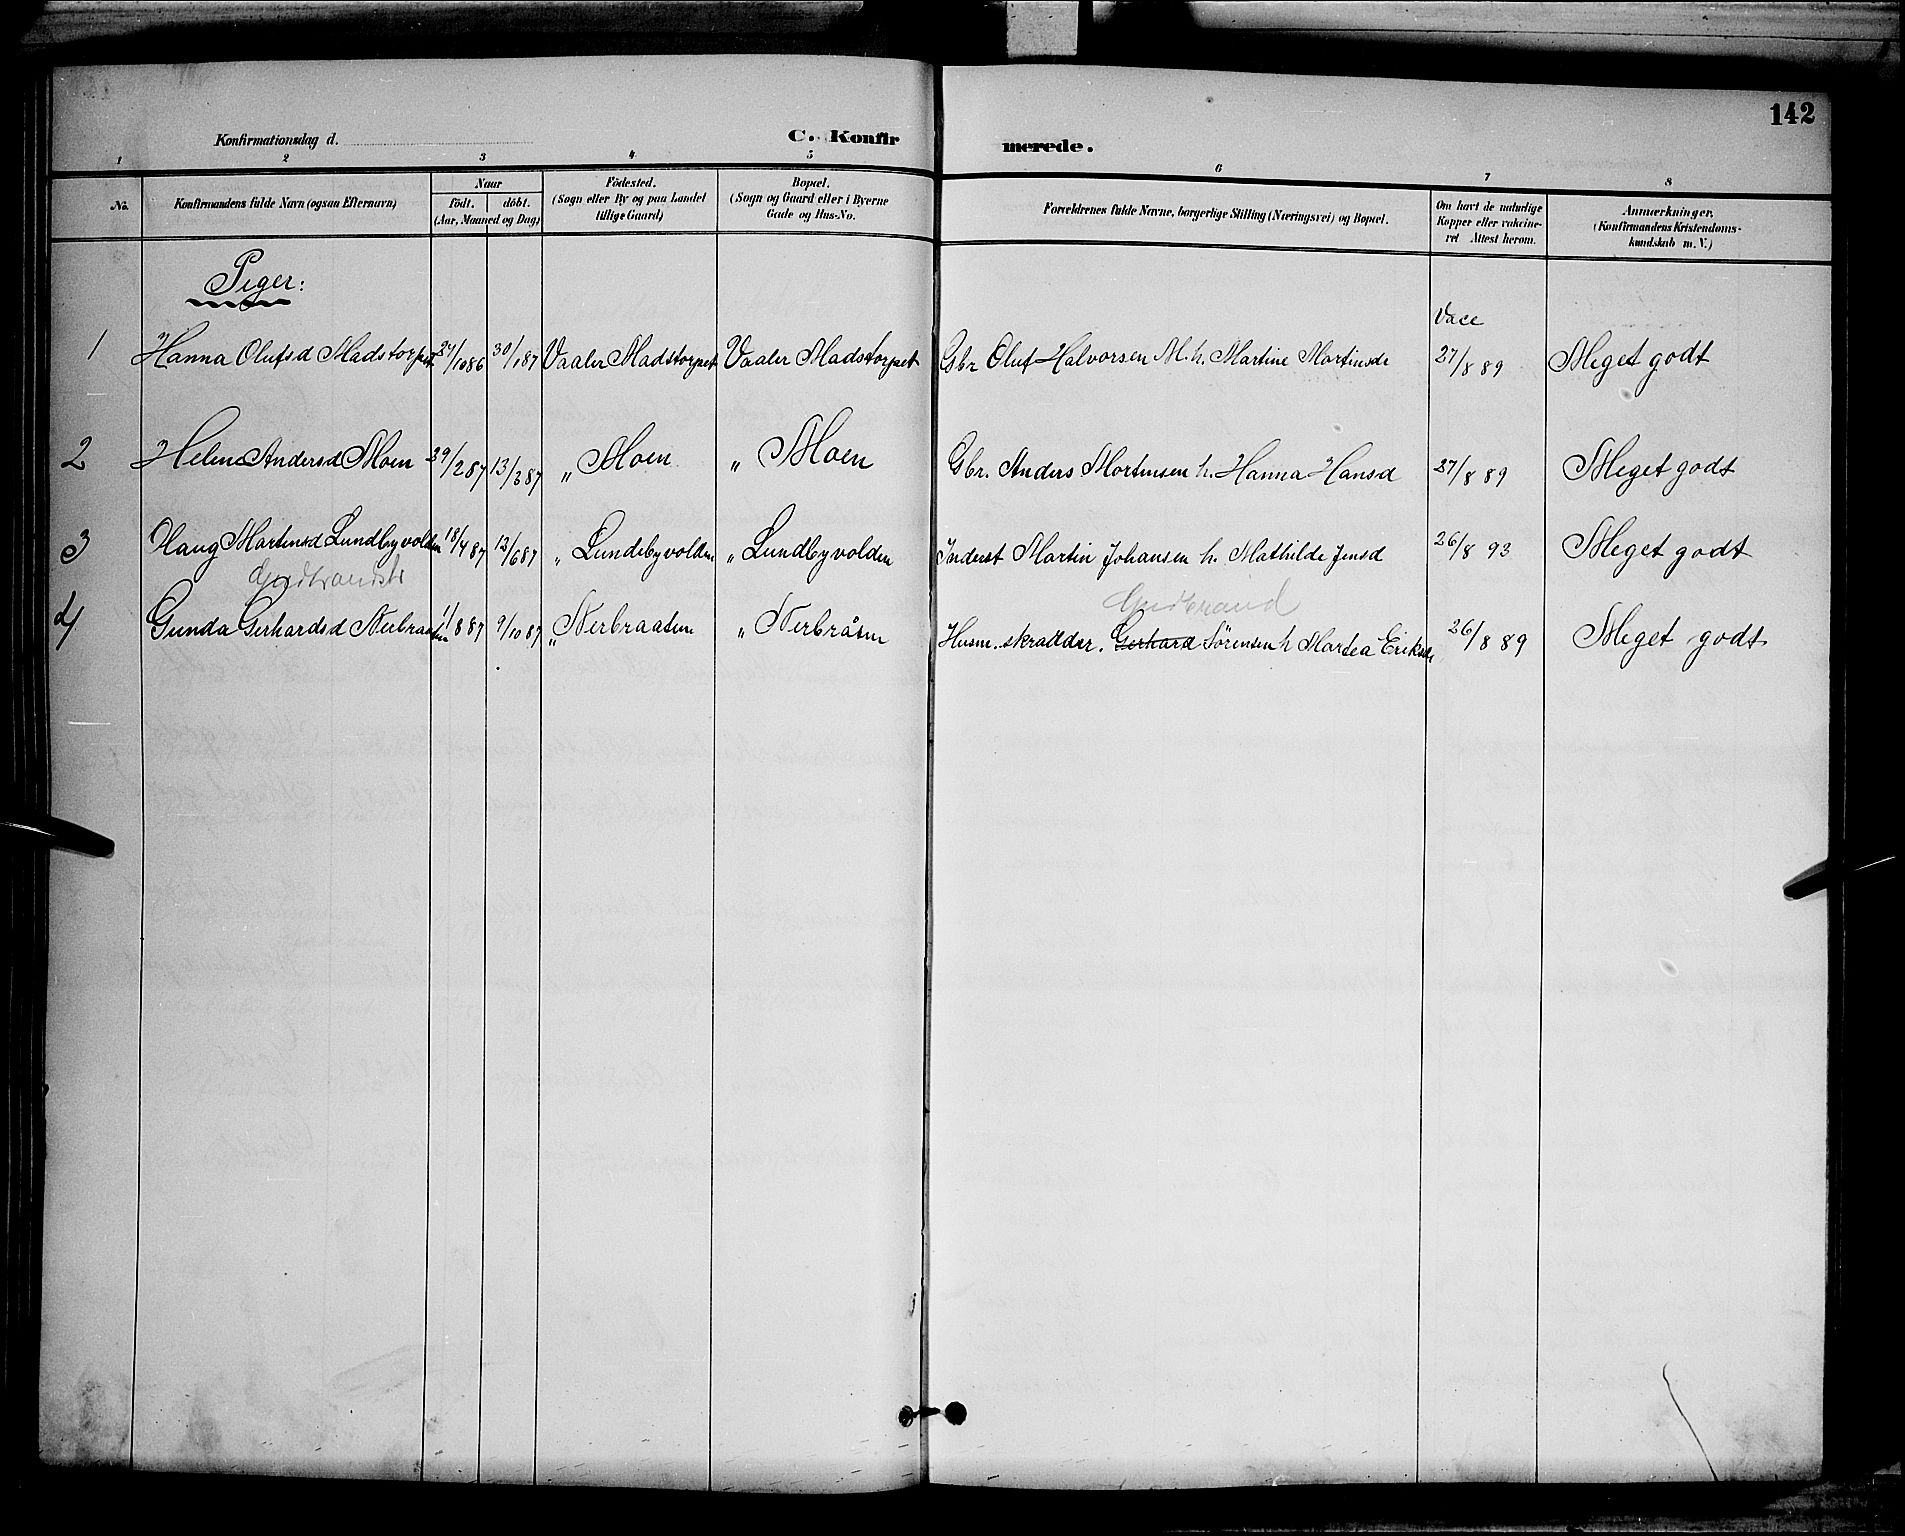 142
Konfirmationsdag d. C. Konfirmerede.
1 2 3 4 5 6 7 8
No. Konfirmandens fulde Navn (ogsaa Efternavn) Naar födt. döbt. (Aar, Maaned og Dag) Födested. (Sogn eller By og paa Landet tillige Gaard) Bopæl. (Sogn og Gaard eller i Byerne Gade og Hus-No. Forældrenes fulde Navne, borgerlige Stilling (Næringsvei) og Bopæl. Om havt de naturlige Kopper eller vakcineret Attest herom. Anmærkninger. (Konfirmandens Kristendomskundskab m. V.)
Piger:
Vacc
1 Hanna Olufsd Madstorpet 24/10 86 30/1 87 Vaaler Madstorpet Vaaler Madstorpet Gbr Oluf Halvorsen M. h. Martine Martinsdr 27/8 89 Meget godt
2 Helene Andersd Moen 29/2 87 13/3 87 " Moen " Moen Gbr. Anders Mortensen h. Hanna Hansd 27/8 89 Meget godt
3 Olaug Martinsd Lundbyvolden 18/4 87 12/6 87 " Lundebyvolden " Lundbyvolden Inderst Martin Johansen h. Mathilde Jensd 26/8 93 Meget godt
Gudbrandsdr Gudbrand
4 Gunda Gerhardsd Nerbraaten 11/8 87 9/10 87 " Nerbraaten " Nerbråten Husm. skrædder. Gerhard Sörensen h Martea Eriksdr 26/8 89 Meget godt